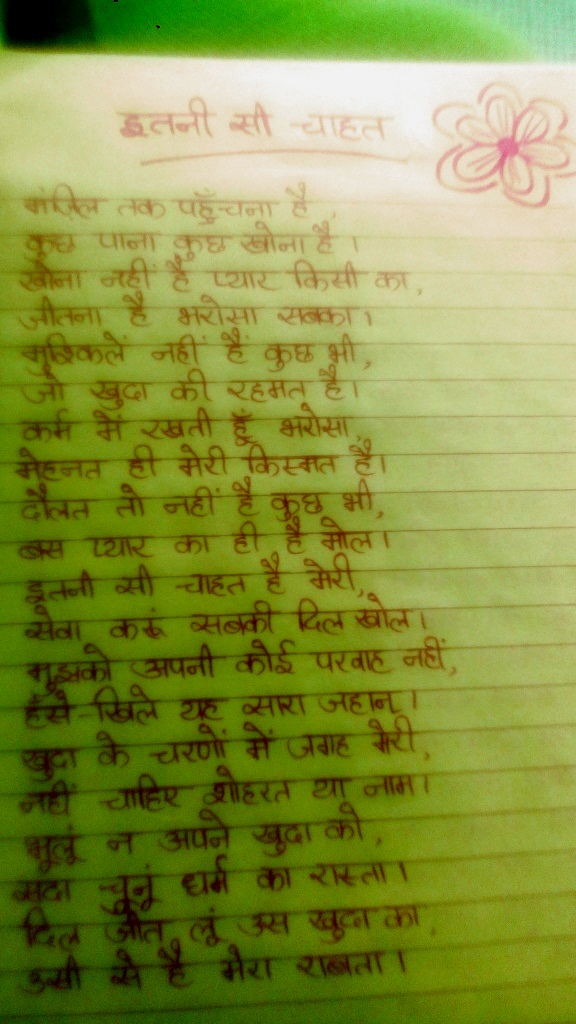 इतनी सी चाहत
मंज़िल तक पहुँचना है,
कुछ पाना कुछ खोना है।
खोना नहीं है प्यार किसी का,
जीतना है भरोसा सबका।
मुश्किलें नहीं हैं कुछ भी,
जो खुदा की रहमत है।
कर्म में रखती हूँ भरोसा,
मेहनत ही मेरी किस्मत है।
दौलत तो नहीं है कुछ भी,
बस प्यार का ही है मोल।
इतनी सी चाहत है मेरी,
सेवा करूं सबकी दिल खोल।
मुझको अपनी कोई परवाह नहीं,
हँसे-खिले यह सारा जहान।
खुदा के चरणों में जगह मेरी,
नहीं चाहिए शोहरत या नाम।
भूलूं न अपने खुदा को,
सदा चूनूं धर्म का रास्ता।
दिल जीत लूं उस खुदा का,
उसी से है मेरा राबता।